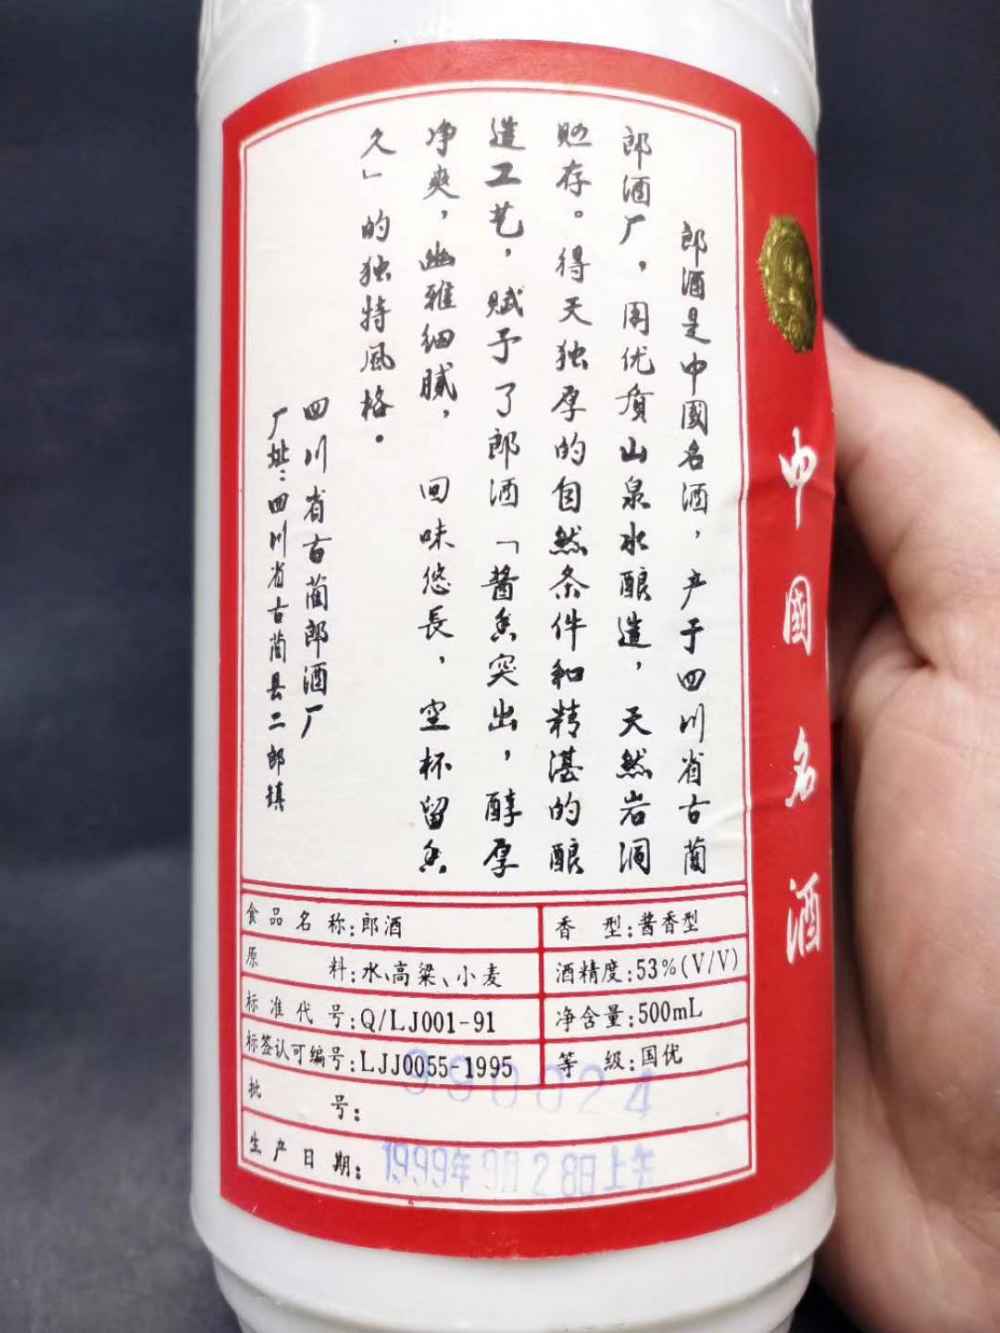 郎酒是中國名酒，产于四川省古蔺
郎酒厂，用优质山泉水酿造，天然岩洞
贮存。得天独厚的自然条件和精湛的酿
造工艺，赋予了郎酒「酱香突出，醇厚
净爽，幽雅细腻，回味悠長，空杯留香
久」的独特風格。
四川省古蔺郎酒厂
厂址：四川省古蔺县二郎镇
中國名酒
食品名称：郎酒
香型：酱香型
原料：水、高粱、小麦
酒精度：53%(V/V)
标准代号：Q/LJ001-91
净含量：500mL
标签认可编号：LJJ0055-1995
等级：国优
批号：990024
生产日期：1999年9月28日上午